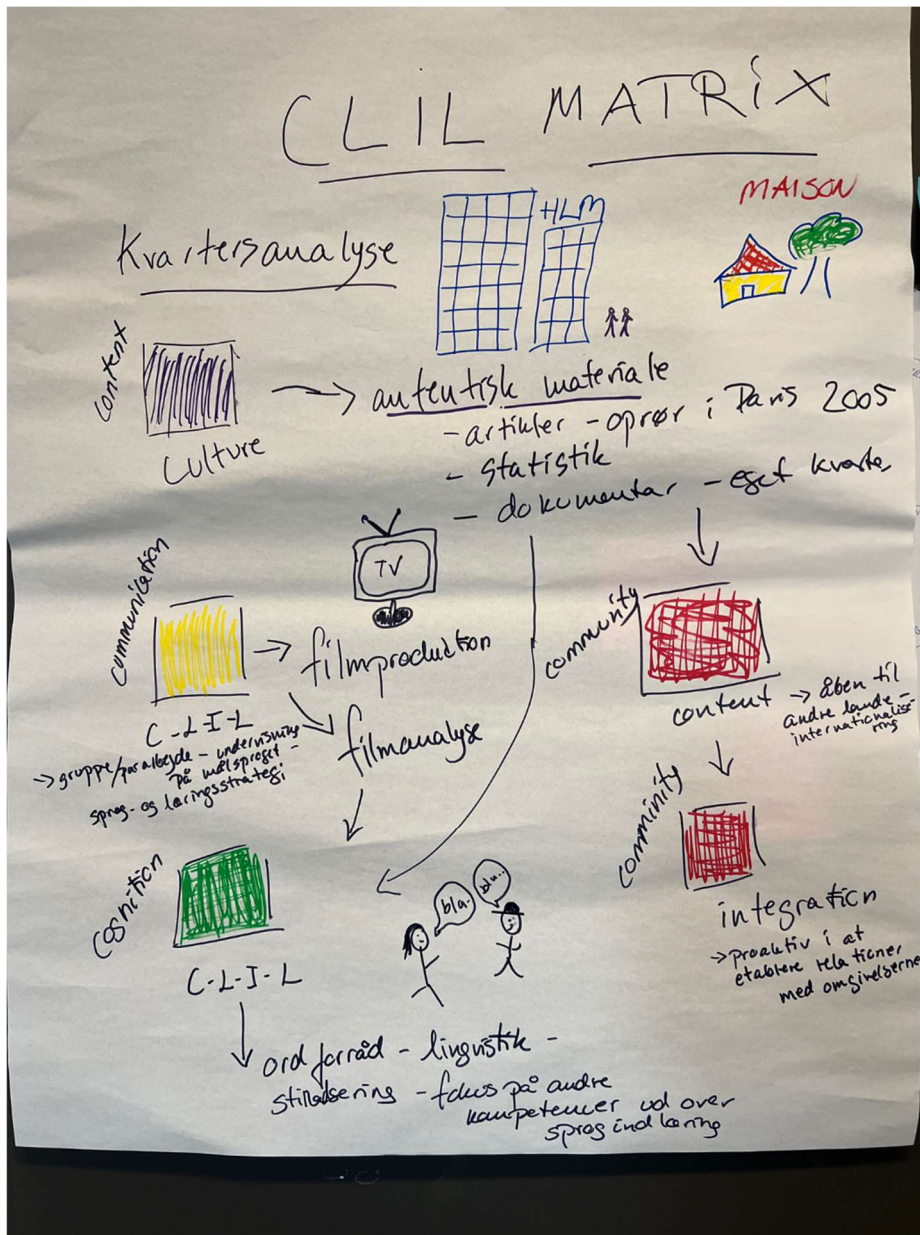 CLIL MATRIX
MAISON
HLM
Kvartersanalyse
content
culture
autentisk materiale
- artikler - oprør i Paris 2005
- statistik
- dokumentar - eget kvarter
communication
TV
filmproduktion
filmanalyse
C-L-I-L
→ gruppe/pararbejde - undervisning
på målsproget -
sprog- og læringsstrategi
community
content → åben til
andre lande -
internationalise-
ring
community
integration
→ proaktiv i at
etablere relationer
med omgivelserne
cognition
bla.
bla..
C-L-I-L
ordforråd - lingvistik -
stilladsering - fokus på andre
kompetencer ud over
sprogindlæring